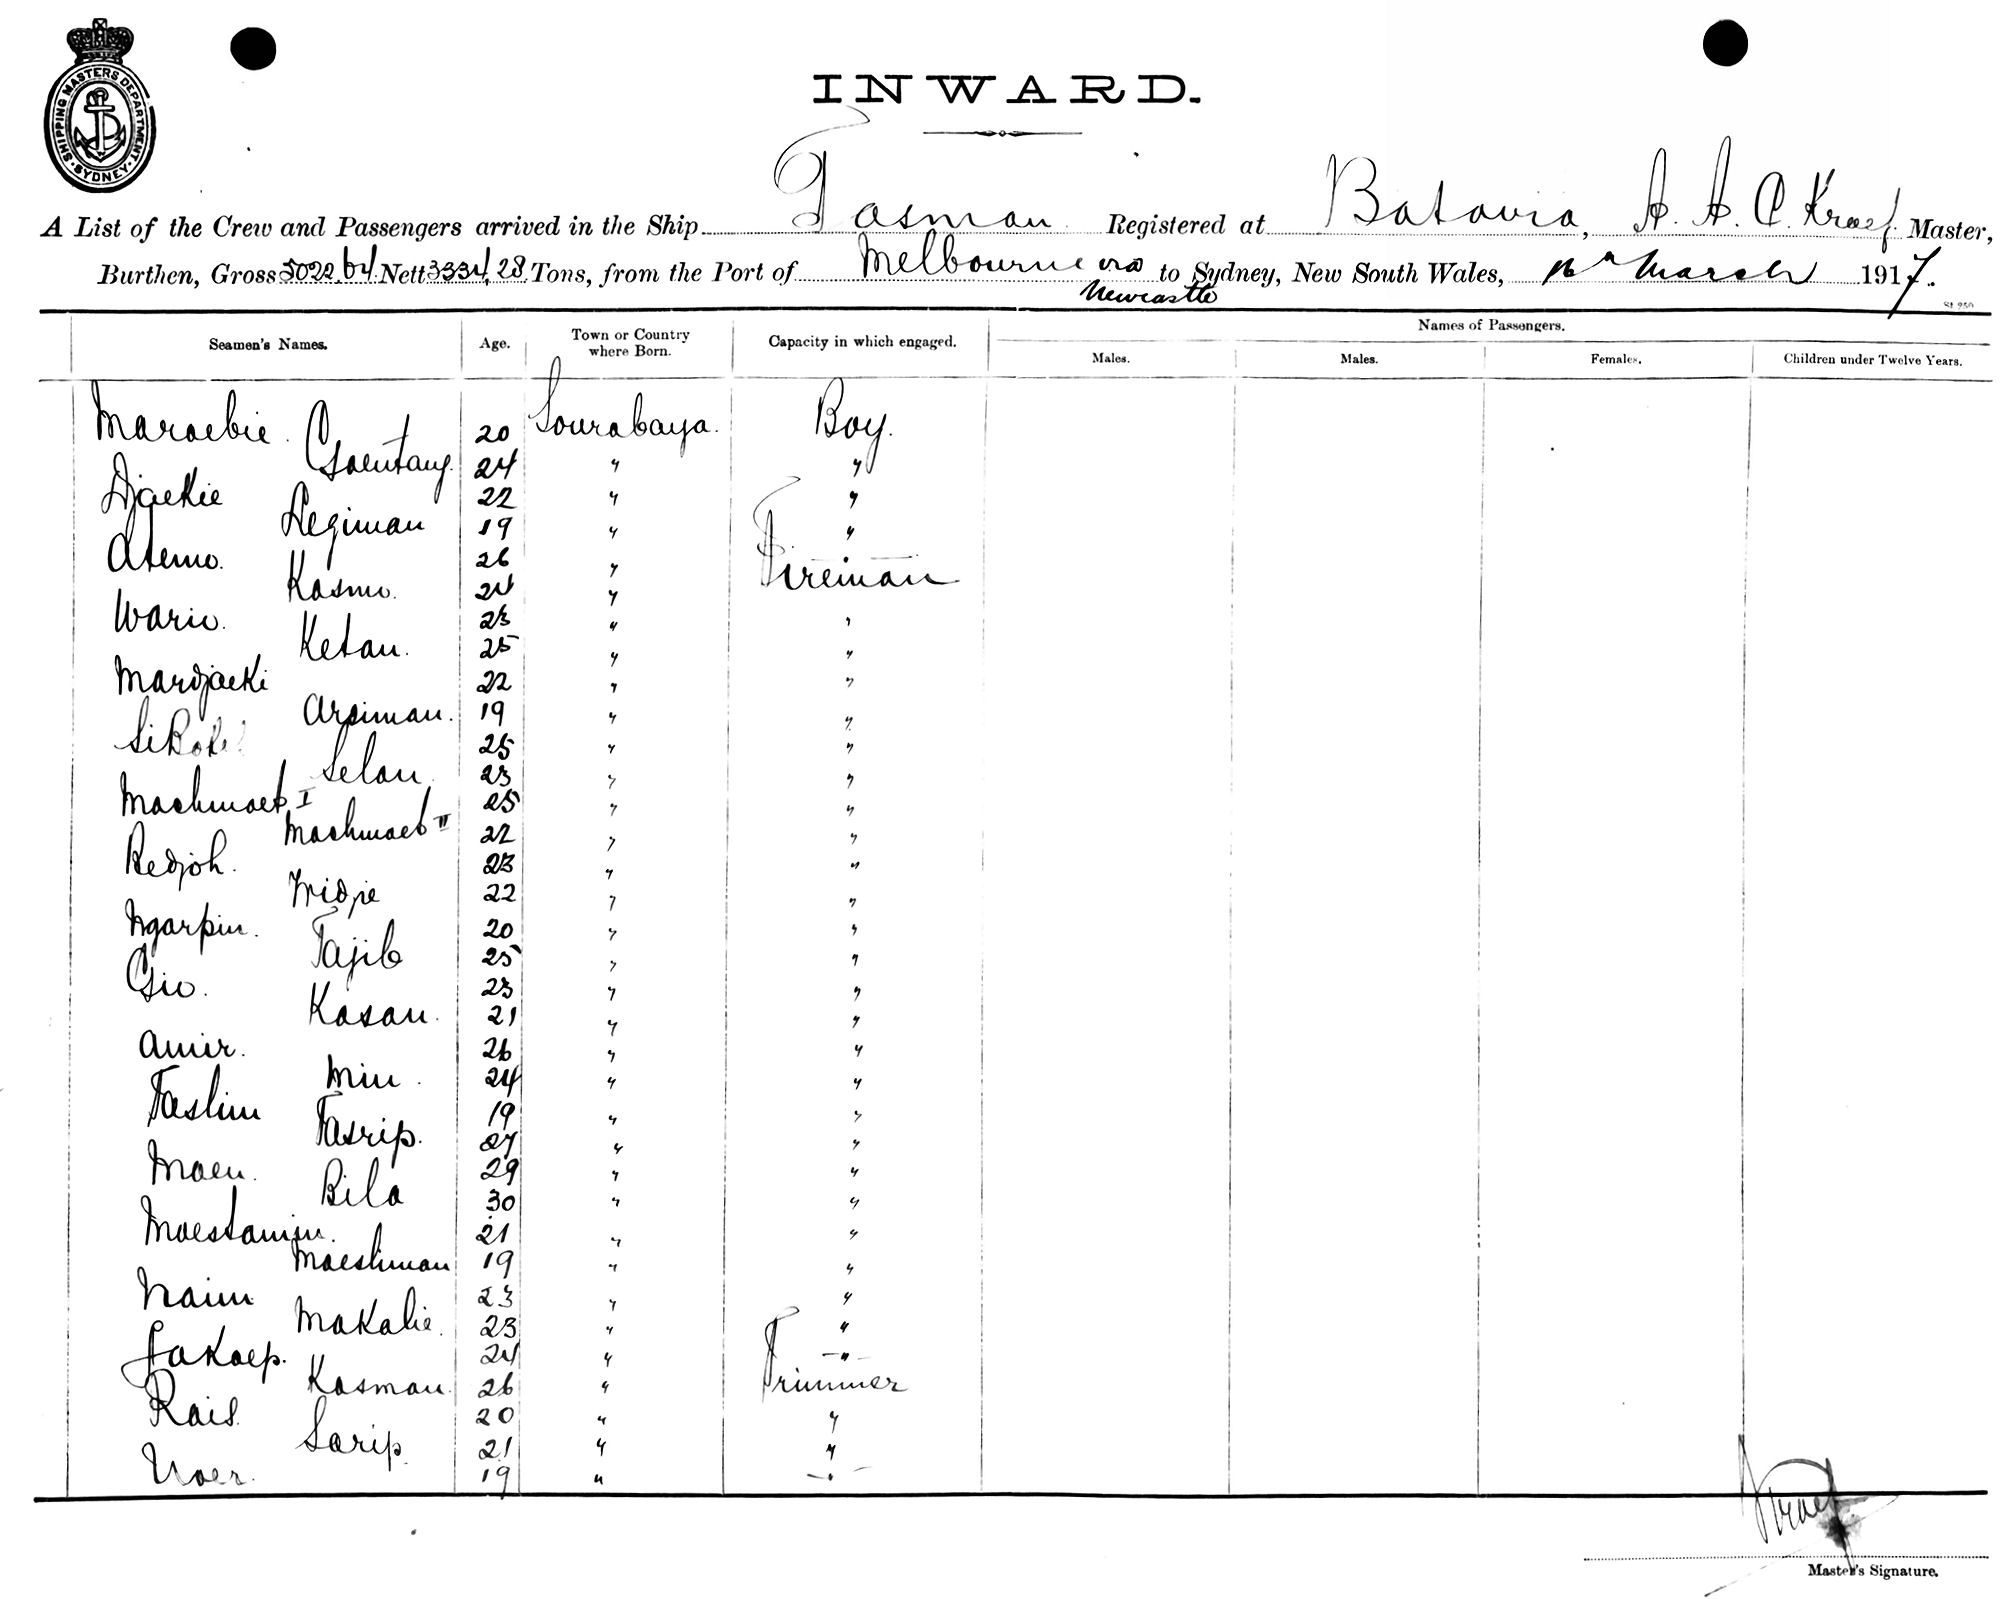 SHIPPING MASTERS DEPARTMENT · SYDNEY ·
INWARD.
A List of the Crew and Passengers arrived in the Ship Tasman Registered at Batavia, A. A. C. Kroef Master,
Burthen, Gross 5022,64 Nett 3334,28 Tons, from the Port of Melbourne via to Sydney, New South Wales, 16th March 1917.
Newcastle
Seamen's Names. Age. Town or Country where Born. Capacity in which engaged. Names of Passengers.
Males. Males. Females. Children under Twelve Years.
Maroebie. 20 Sourabaya. Boy.
Goentang. 24 " "
Djaekie 22 " "
Legiman 19 " "
Atemo. 26 " Fireman
Kasmo. 24 "
Wario. 23 " "
Ketan. 25 " "
Mardjaeki 22 " "
Arsiman. 19 " "
25 " "
Selan. 23 " "
Machmoed I 25 " "
Machmoed II 22 " "
Redjoh. 23 " "
Widjie 22 " "
Ngarpin. 20 " "
Tajib 25 " "
Gio. 23 " "
Kasan. 21 " "
Amir. 26 " "
Min. 24 " "
Taslim 19 " "
Tasrip. 27 " "
Moen. 29 " "
Bila 30 " "
Moestamin. 21 " "
Moesliman 19 " "
Naim 23 " "
Makalie. 23 " "
Jakoep. 24 " "
Kasman. 26 " Trimmer
Rais. 20 " "
Sarip. 21 " "
Noer. 19 " "
Kroef
Master's Signature.